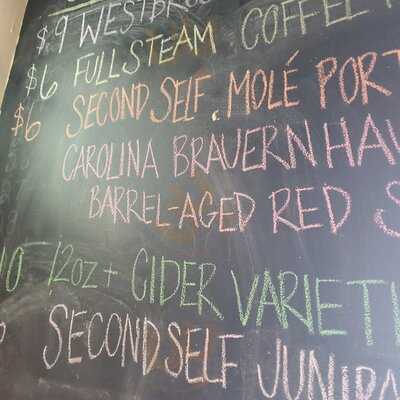 $9 WESTBRO
$6 FULLSTEAM COFFEE
$6 SECOND SELF MOLÉ PORT
CAROLINA BRAUERNHAU
BARREL-AGED RED S
10 12oz + CIDER VARIETI
SECOND SELF JUNIPA